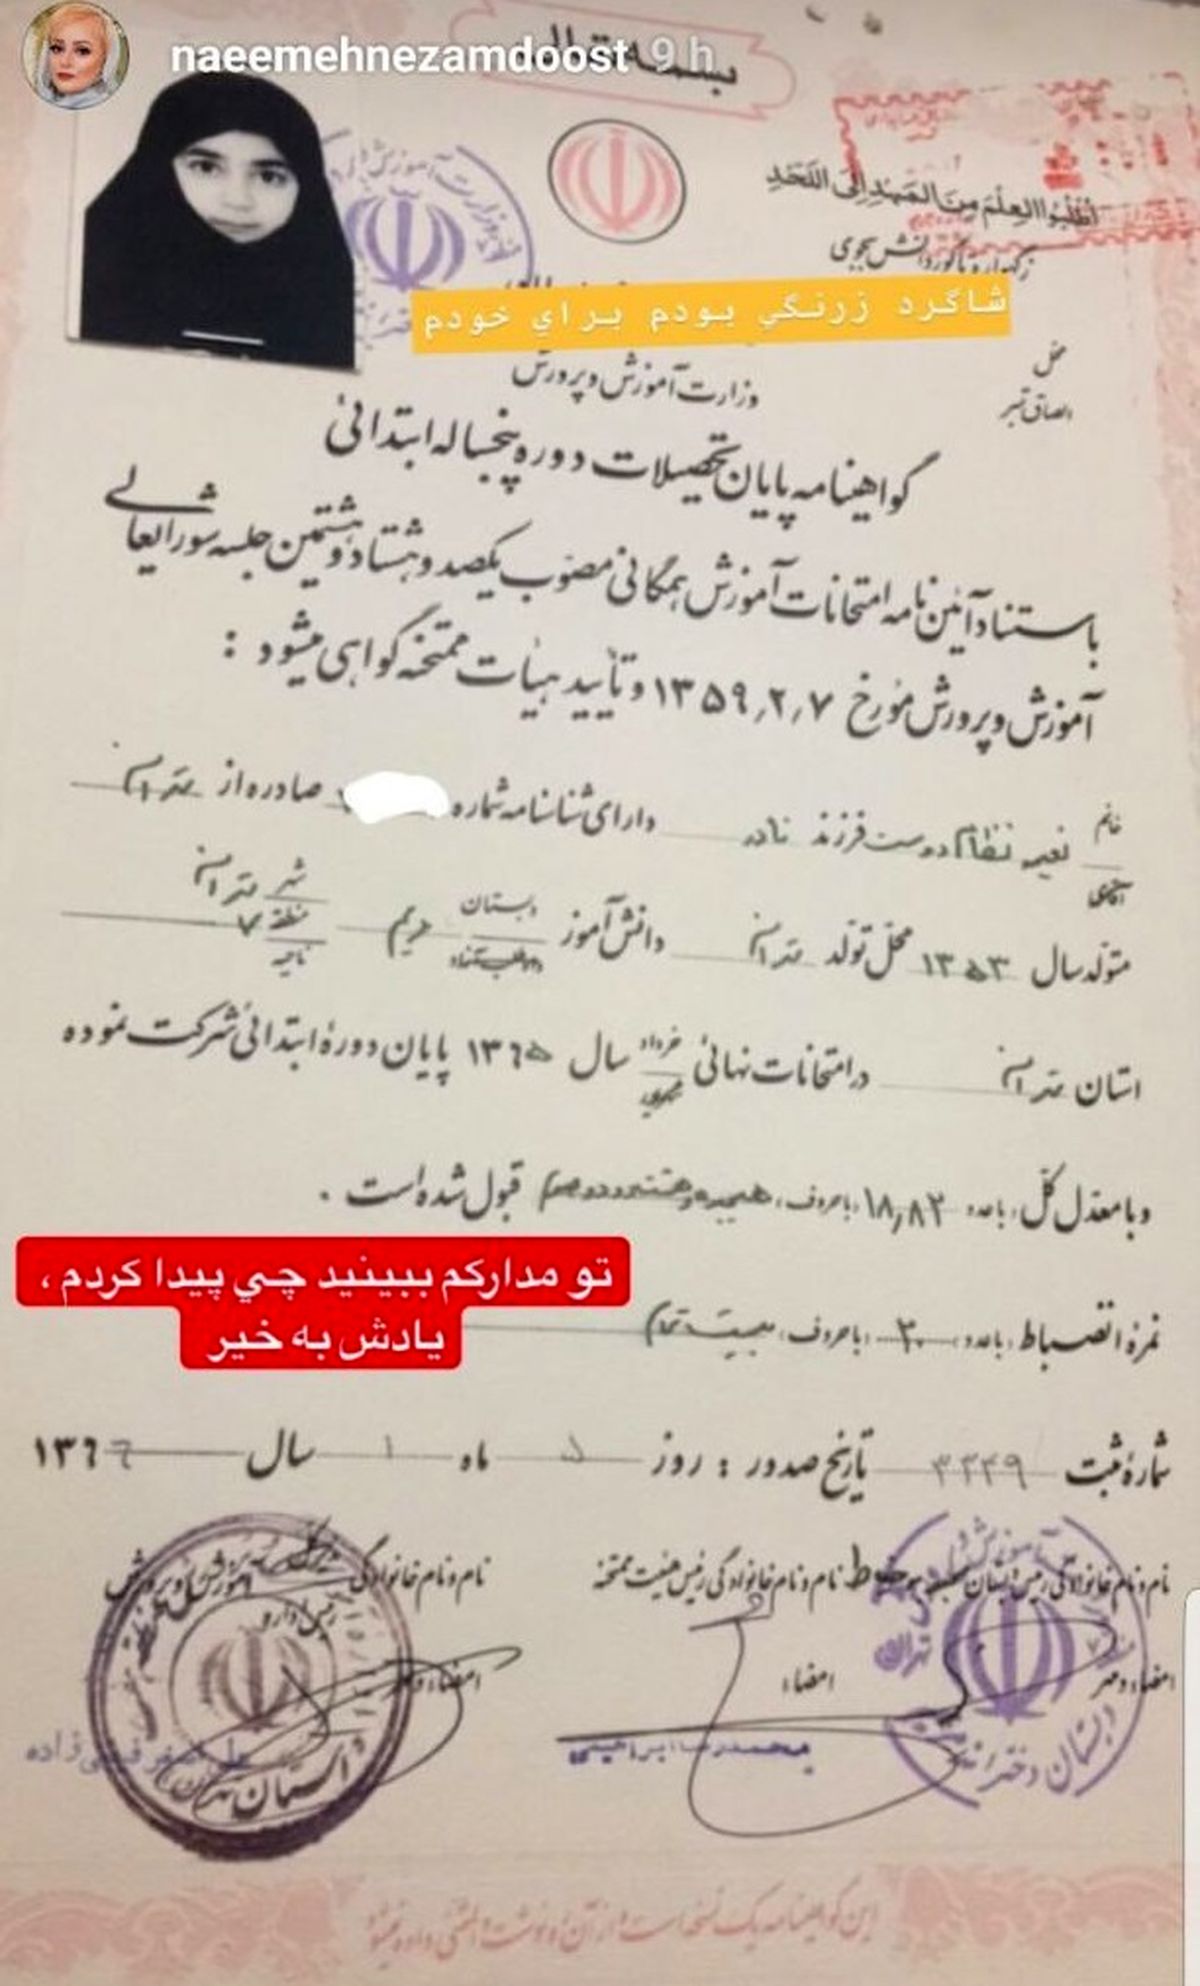 naeemehnezamdoost 9h
بسمه تعالی
اُطْلُبُوا العِلْمَ مِنَ المَهدِ اِلَی اللَّحَدِ
ز گهواره تا گور دانش بجوی
شاگرد زرنگي بودم براي خودم
محل
الصاق تمبر
وزارت آموزش و پرورش
گواهینامه پایان تحصیلات دوره پنجساله ابتدائی
باستناد آئین نامه امتحانات آموزش همگانی مصوب یکصد و هشتاد و هشتمین جلسه شورایعالی
آموزش و پرورش مورخ ۱۳۵۹٫۲٫۷ و تأیید هیأت ممتحنه گواهی میشود :
خانم نعیمه نظام دوست فرزند نادر دارای شناسنامه شماره صادره از تهران
آقای
متولد سال ۱۳۵۳ محل تولد تهران دانش آموز دبستان مریم شهر تهران
منطقه ۷
ناحیه
استان تهران در امتحانات نهائی خرداد سال ۱۳۶۵ پایان دورهٔ ابتدائی شرکت نموده
و با معدل کل (با عدد) ۱۸٫۸۲ (با حروف) هیجده و هشتاد و دو صدم قبول شده است .
تو مدارکم ببینید چي پیدا کردم ،
یادش به خیر
نمره انضباط (با عدد) ۲۰ (با حروف) بیست تمام
شمارهٔ ثبت ۳۴۴۹ تاریخ صدور : روز ۵ ماه ۱ سال ۱۳۶۶
نام و نام خانوادگی رئیس دبستان نام و نام خانوادگی رئیس هیئت ممتحنه نام و نام خانوادگی
رئیس اداره
امضاء و مهر امضاء امضاء و مهر
محمدرضا ابراهیمی
این گواهینامه یک نسخه است و از آن رونوشت و المثنی داده نمیشود